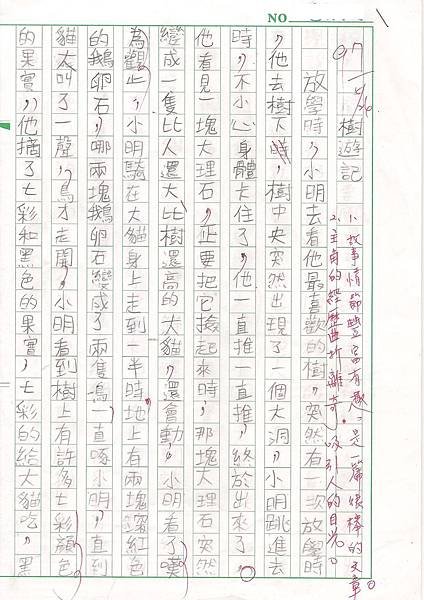 NO
97 5/26
樹遊記
1. 故事情節豐富有趣，是一篇很棒的文章。
2. 主角的經歷曲折離奇，吸引人的目光。
放學時，小明去看他最喜歡的樹，突然有一次放學時
，他去樹下時，樹中央突然出現了一個大洞，小明跳進去
時，不小心身體卡住了，他一直推一直推，終於出來了。
他看見一塊大理石，正要把它撿起來時，那塊大理石突然
變成一隻比人還大比樹還高的大貓，還會動，小明看了嘆
為觀止，小明騎在大貓身上走到一半時地上有兩塊深紅色
的鵝卵石，哪兩塊鵝卵石變成了兩隻鳥一直啄小明，直到
貓大叫了一聲，鳥才走開，小明看到樹上有許多七彩顏色
的果實，他摘了七彩和黑色的果實，七彩的給大貓吃，黑